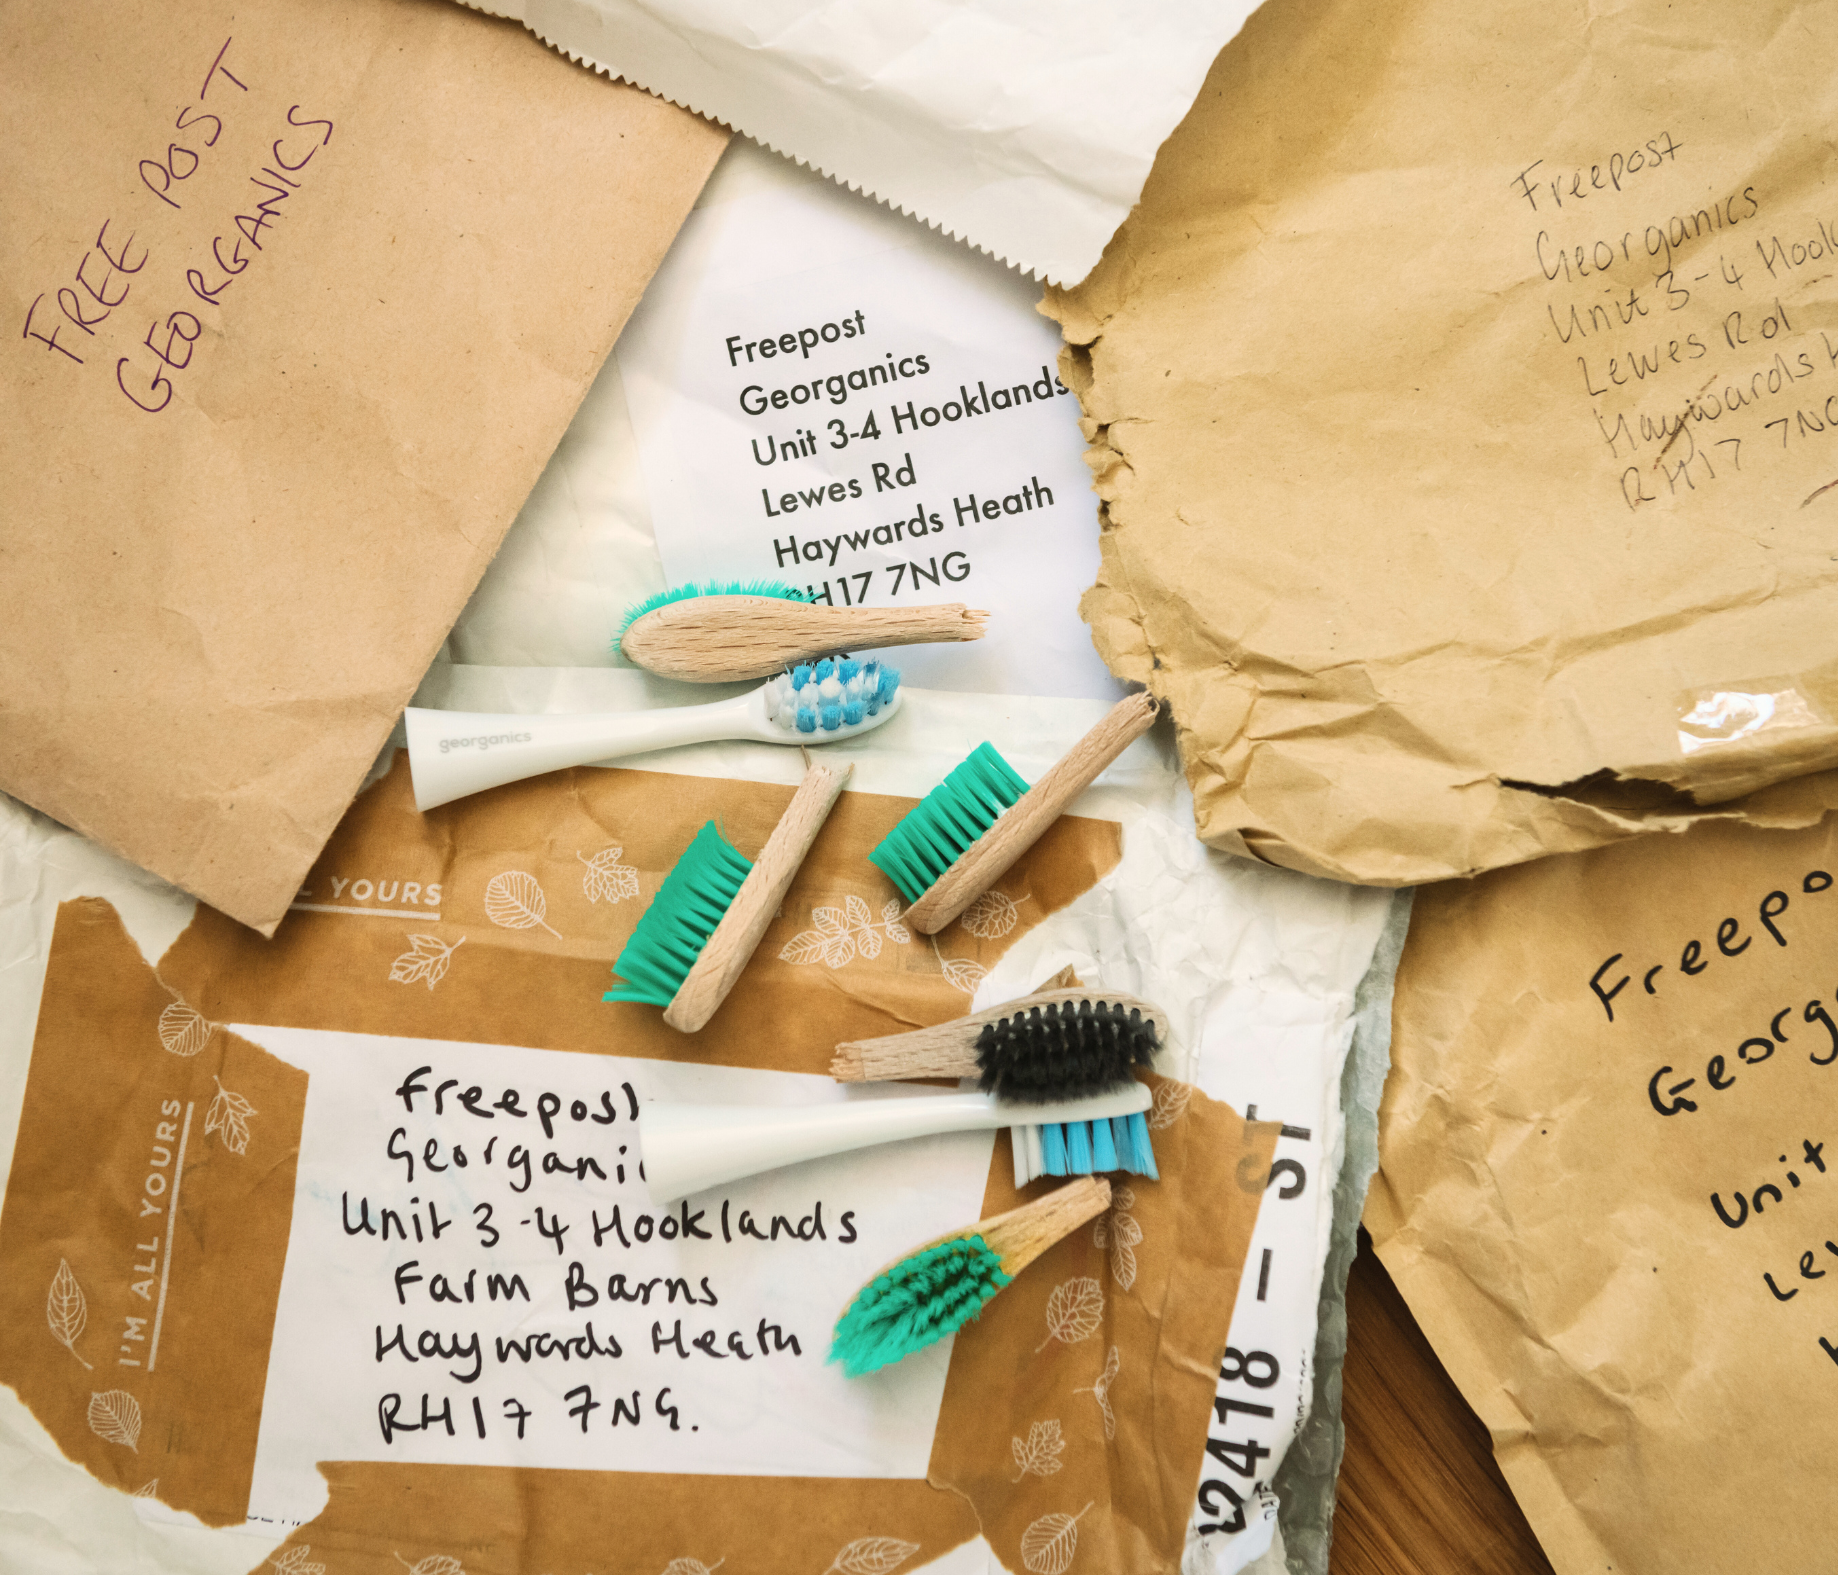 FREE POST
GEORGANICS
Freepost
Georganics
Unit 3-4 Hooklands
Lewes Rd
Haywards Heath
RH17 7NG
Freepost
Georganics
Unit 3-4 Hook
Lewes Rd
Haywards H
RH17 7NG
georganics
L YOURS
I'M ALL YOURS
Freepost
Georgani
Unit 3-4 Hooklands
Farm Barns
Haywards Heath
RH17 7NG.
2418 – ST
Freepo
Georg
Unit
Lew